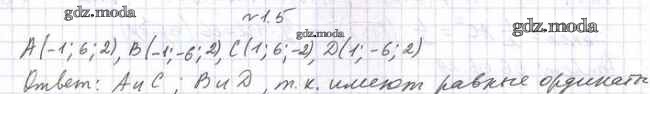 gdz.moda
№1.5
gdz.moda
A(-1; 6; 2), B(-1; -6; 2), C(1; 6; -2), D(1; -6; 2)
Ответ: A и C ; B и D , т.к. имеют равные ординаты
gdz.moda